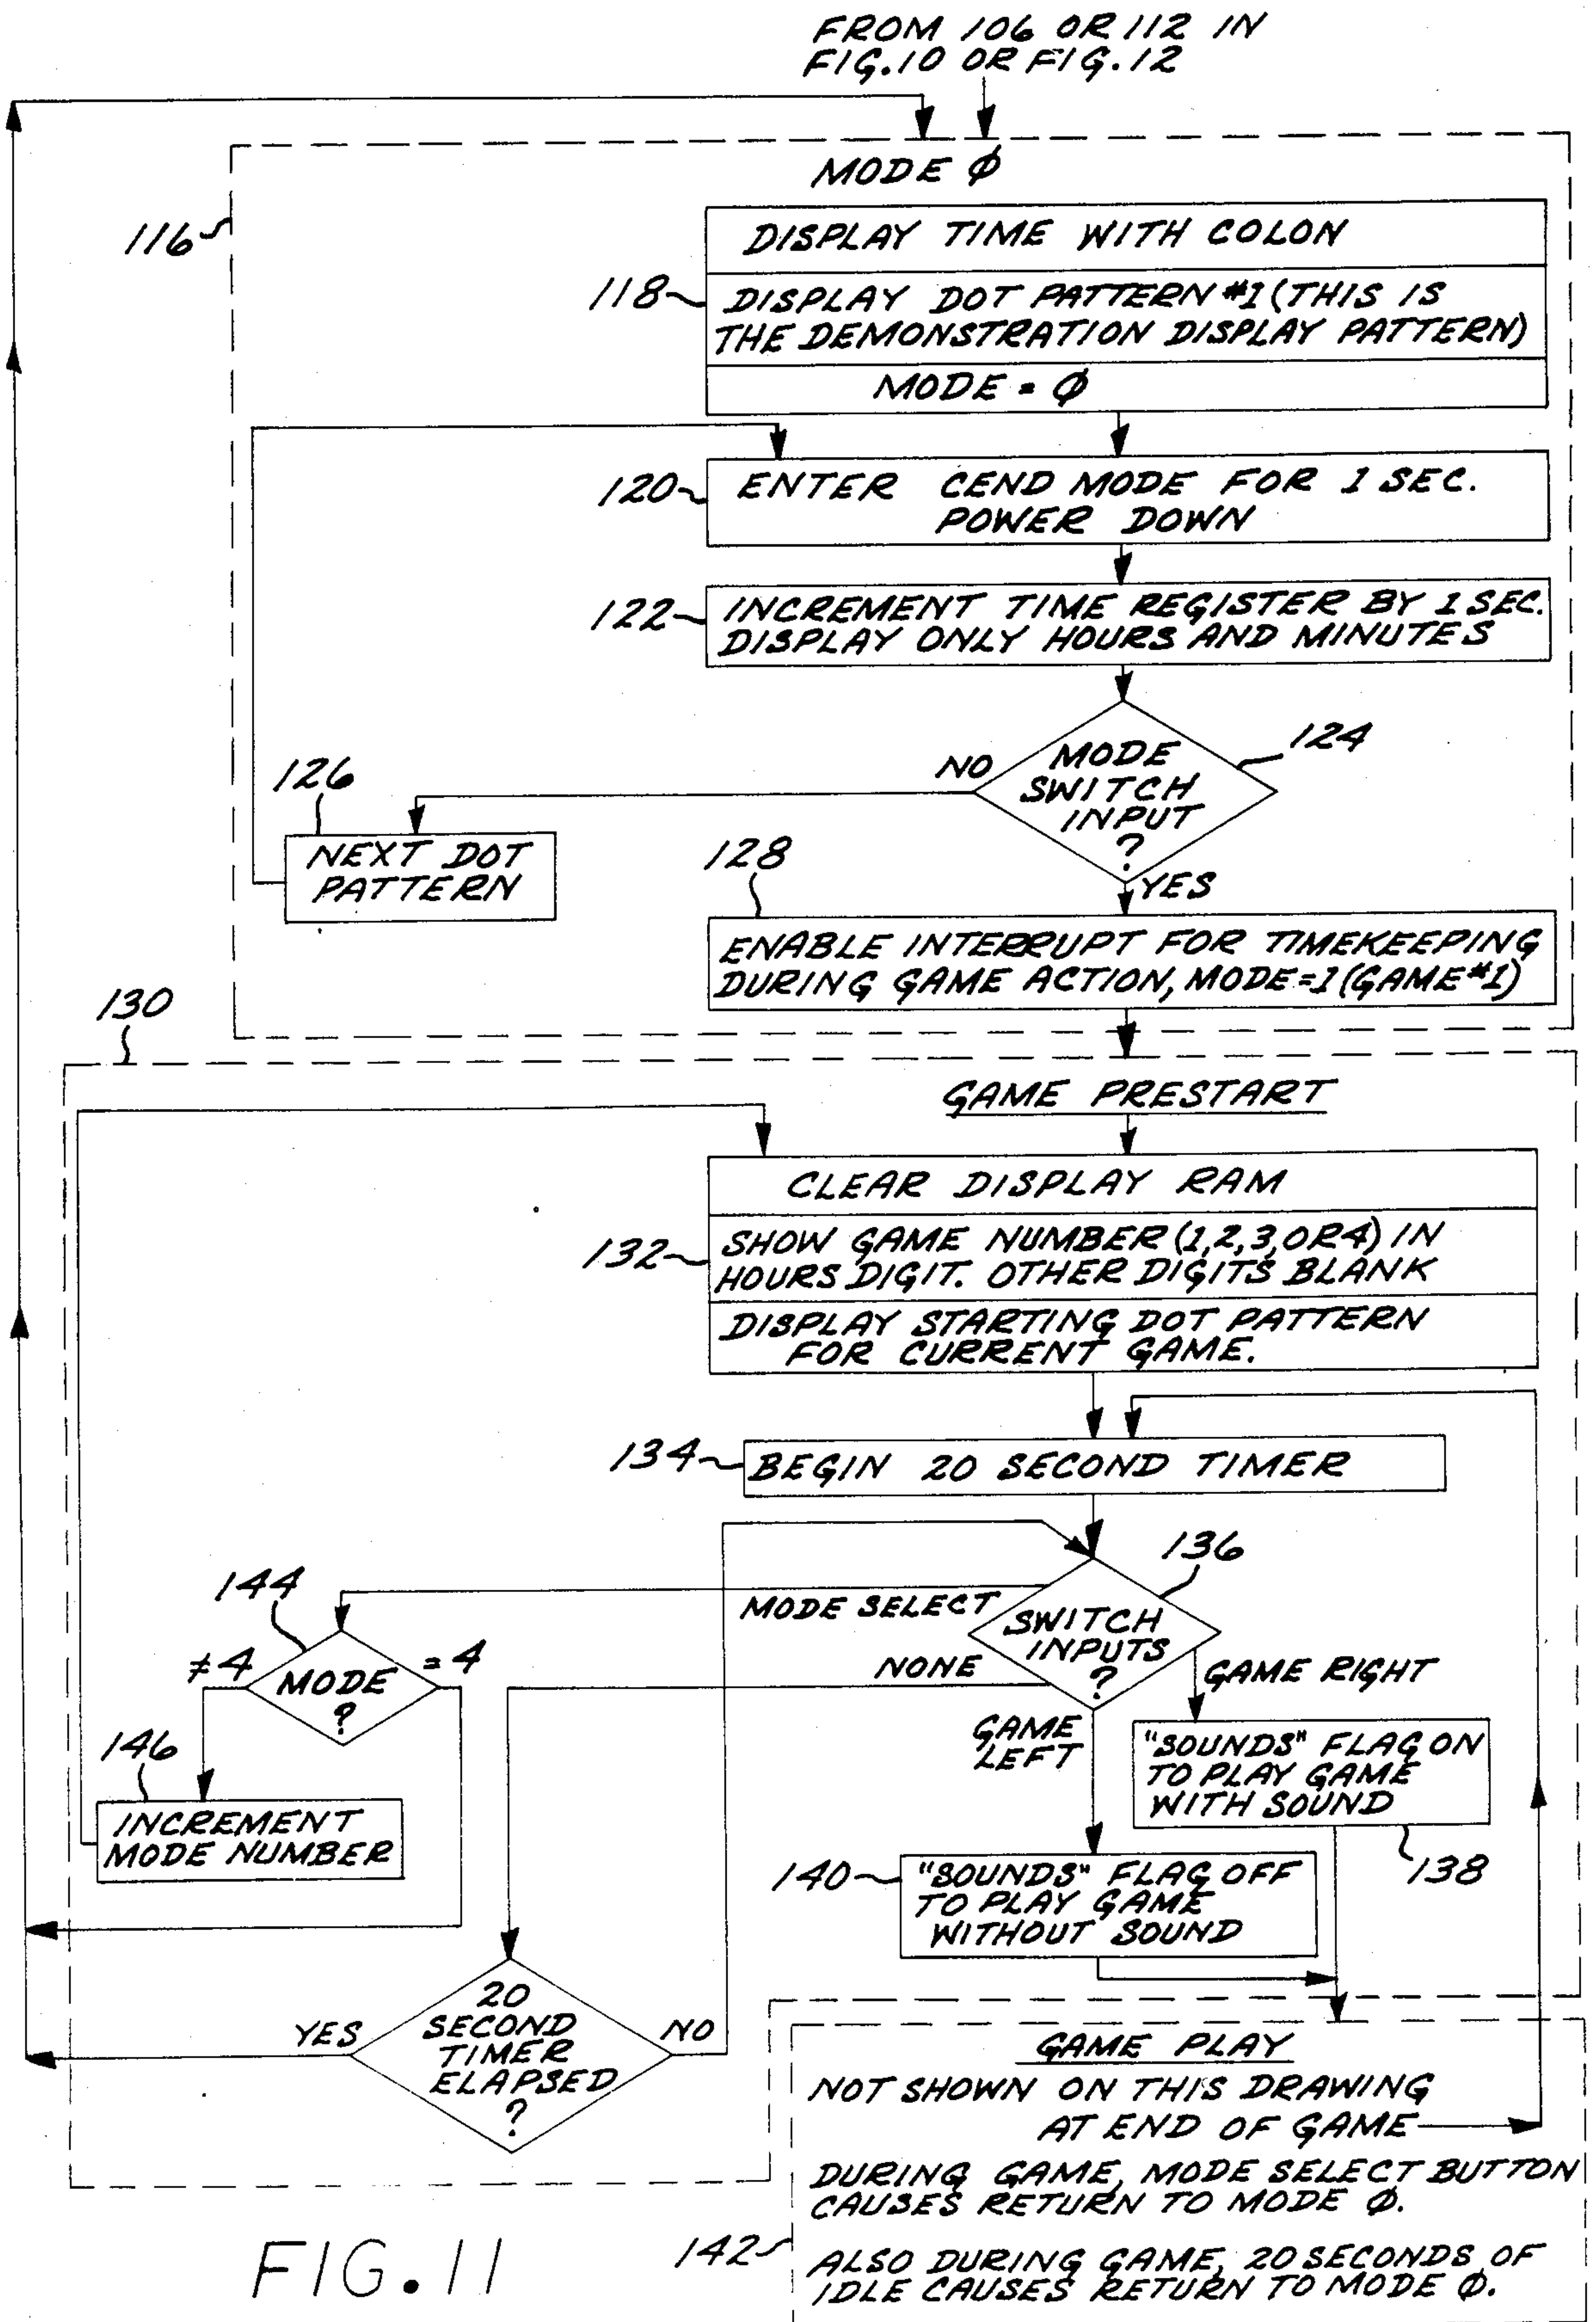 FROM 106 OR 112 IN
FIG.10 OR FIG.12
MODE Ø
116
DISPLAY TIME WITH COLON
118
DISPLAY DOT PATTERN #1 (THIS IS
THE DEMONSTRATION DISPLAY PATTERN)
MODE = Ø
120
ENTER CEND MODE FOR 1 SEC.
POWER DOWN
122
INCREMENT TIME REGISTER BY 1 SEC.
DISPLAY ONLY HOURS AND MINUTES
124
MODE
SWITCH
INPUT
?
NO
126
NEXT DOT
PATTERN
YES
128
ENABLE INTERRUPT FOR TIMEKEEPING
DURING GAME ACTION, MODE=1 (GAME #1)
130
GAME PRESTART
CLEAR DISPLAY RAM
132
SHOW GAME NUMBER (1,2,3,OR4) IN
HOURS DIGIT. OTHER DIGITS BLANK
DISPLAY STARTING DOT PATTERN
FOR CURRENT GAME.
134
BEGIN 20 SECOND TIMER
136
SWITCH
INPUTS
?
MODE SELECT
NONE
GAME
LEFT
GAME RIGHT
144
≠4
MODE
?
=4
146
INCREMENT
MODE NUMBER
"SOUNDS" FLAG ON
TO PLAY GAME
WITH SOUND
138
140
"SOUNDS" FLAG OFF
TO PLAY GAME
WITHOUT SOUND
YES
20
SECOND
TIMER
ELAPSED
?
NO
GAME PLAY
NOT SHOWN ON THIS DRAWING
AT END OF GAME
DURING GAME, MODE SELECT BUTTON
CAUSES RETURN TO MODE Ø.
142
ALSO DURING GAME, 20 SECONDS OF
IDLE CAUSES RETURN TO MODE Ø.
FIG.11